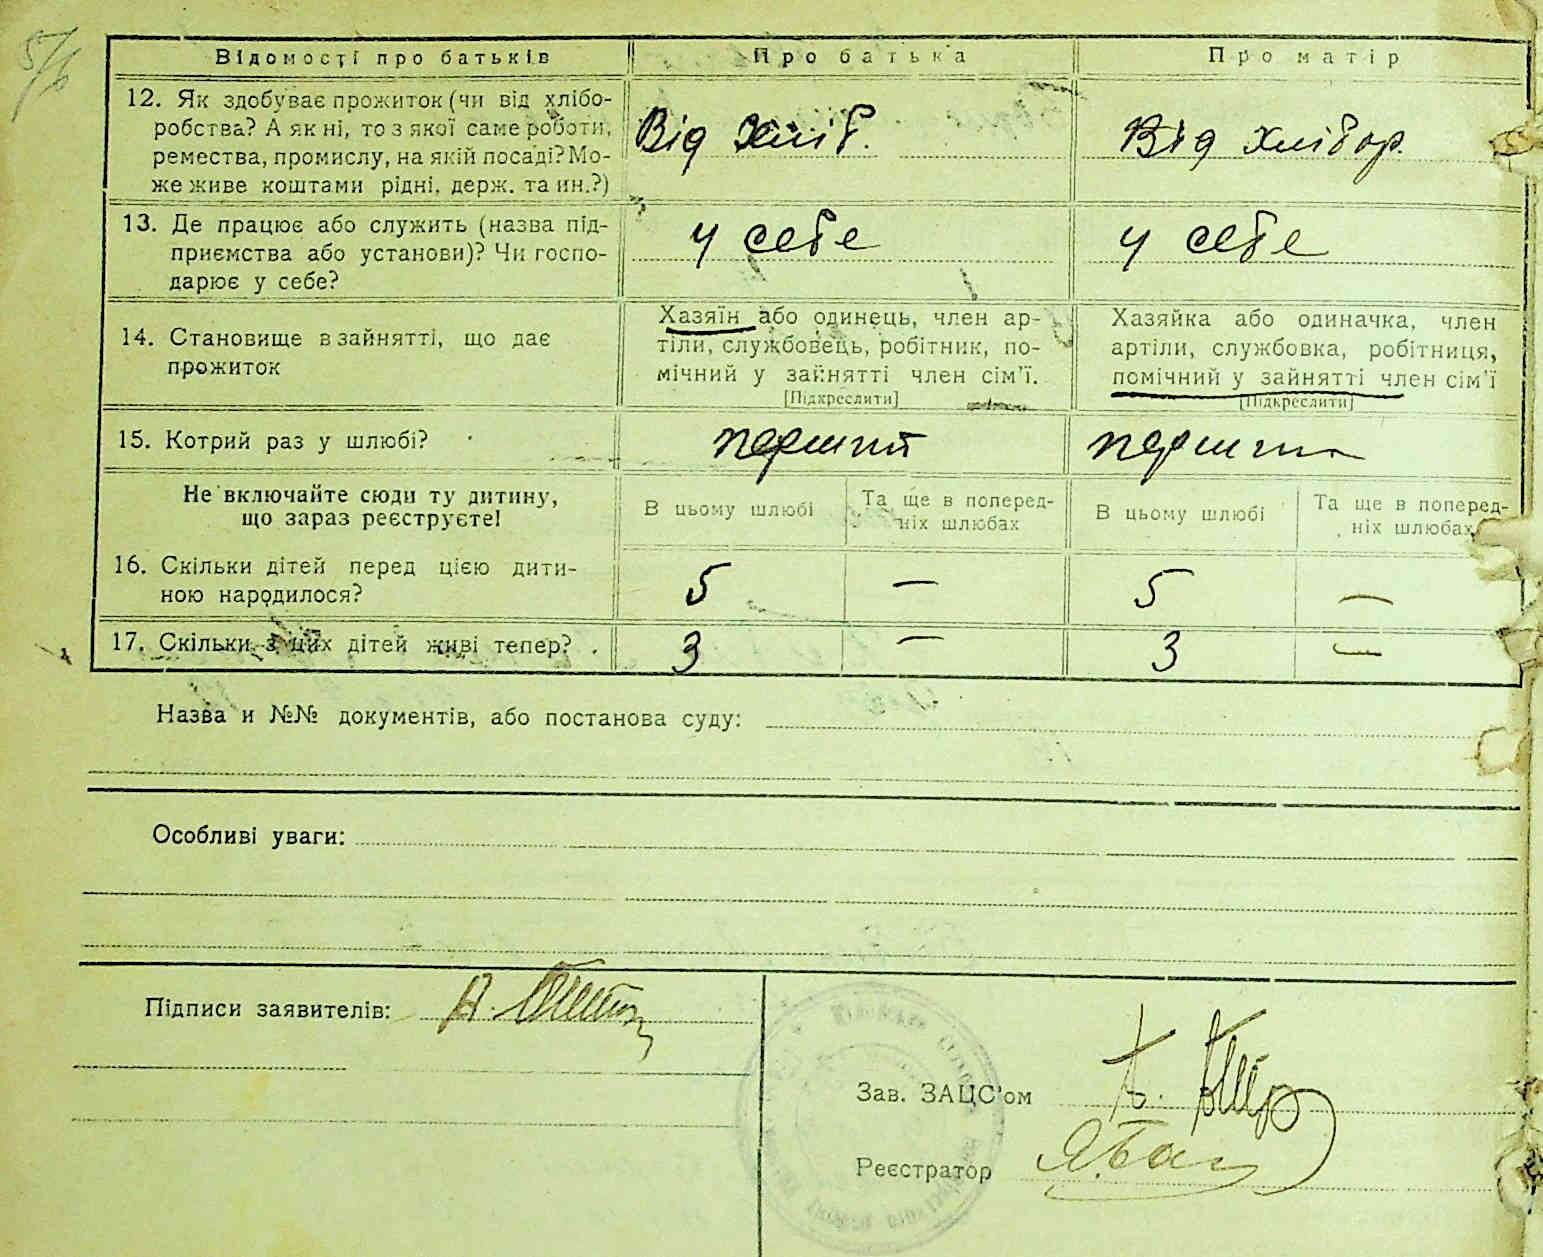 5/6
Відомості про батьків
Про батька
Про матір
12. Як здобуває прожиток (чи від хлібо-
робства? А як ні, то з якої саме роботи,
ремества, промислу, на якій посаді? Мо-
же живе коштами рідні, держ. та ин.?)
Від хліб.
Від хлібор.
13. Де працює або служить (назва під-
приємства або установи)? Чи госпо-
дарює у себе?
у себе
у себе
14. Становище в зайнятті, що дає
прожиток
Хазяїн або одинець, член ар-
тіли, службовець, робітник, по-
мічний у зайнятті член сім'ї.
[Підкреслити]
Хазяйка або одиначка, член
артіли, службовка, робітниця,
помічний у зайнятті член сім'ї
[Підкреслити]
15. Котрий раз у шлюбі?
перший
перший
Не включайте сюди ту дитину,
що зараз реєструєте!
В цьому шлюбі
Та ще в поперед-
ніх шлюбах
В цьому шлюбі
Та ще в поперед-
ніх шлюбах
16. Скільки дітей перед цією дити-
ною народилося?
5
—
5
—
17. Скільки з цих дітей живі тепер?
3
—
3
—
Назва и №№ документів, або постанова суду:
Особливі уваги:
Підписи заявителів:
Зав. ЗАЦС'ом
Реєстратор